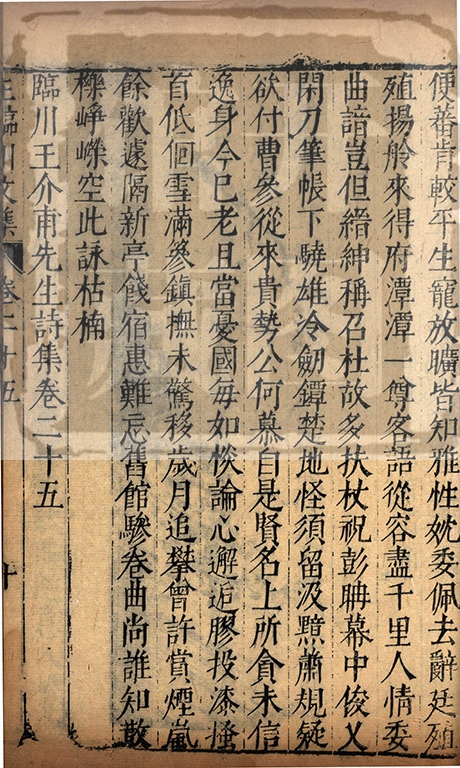 便蕃肯較平生寵放曠皆知雅性妉委佩去辭廷殖
殖揚舲來得府潭潭一尊客語從容盡千里人情委
曲諳豈但縉紳稱召杜故多扶杖祝彭聃幕中俊乂
閑刀筆帳下驍雄冷劒鐔楚地怪須留汲黯蕭規疑
欲付曹參從來貴勢公何慕自是賢名上所貪未信
逸身今已老且當憂國每如惔論心邂逅膠投漆搔
首低佪雪滿篸鎮撫未驚移歲月追攀曾許賞煙嵐
餘歡遽隔新亭餞宿惠難忘舊館驂卷曲尚誰知散
櫟崢嶸空此詠枯楠
臨川王介甫先生詩集卷二十五
王臨川文集 卷二十五 十